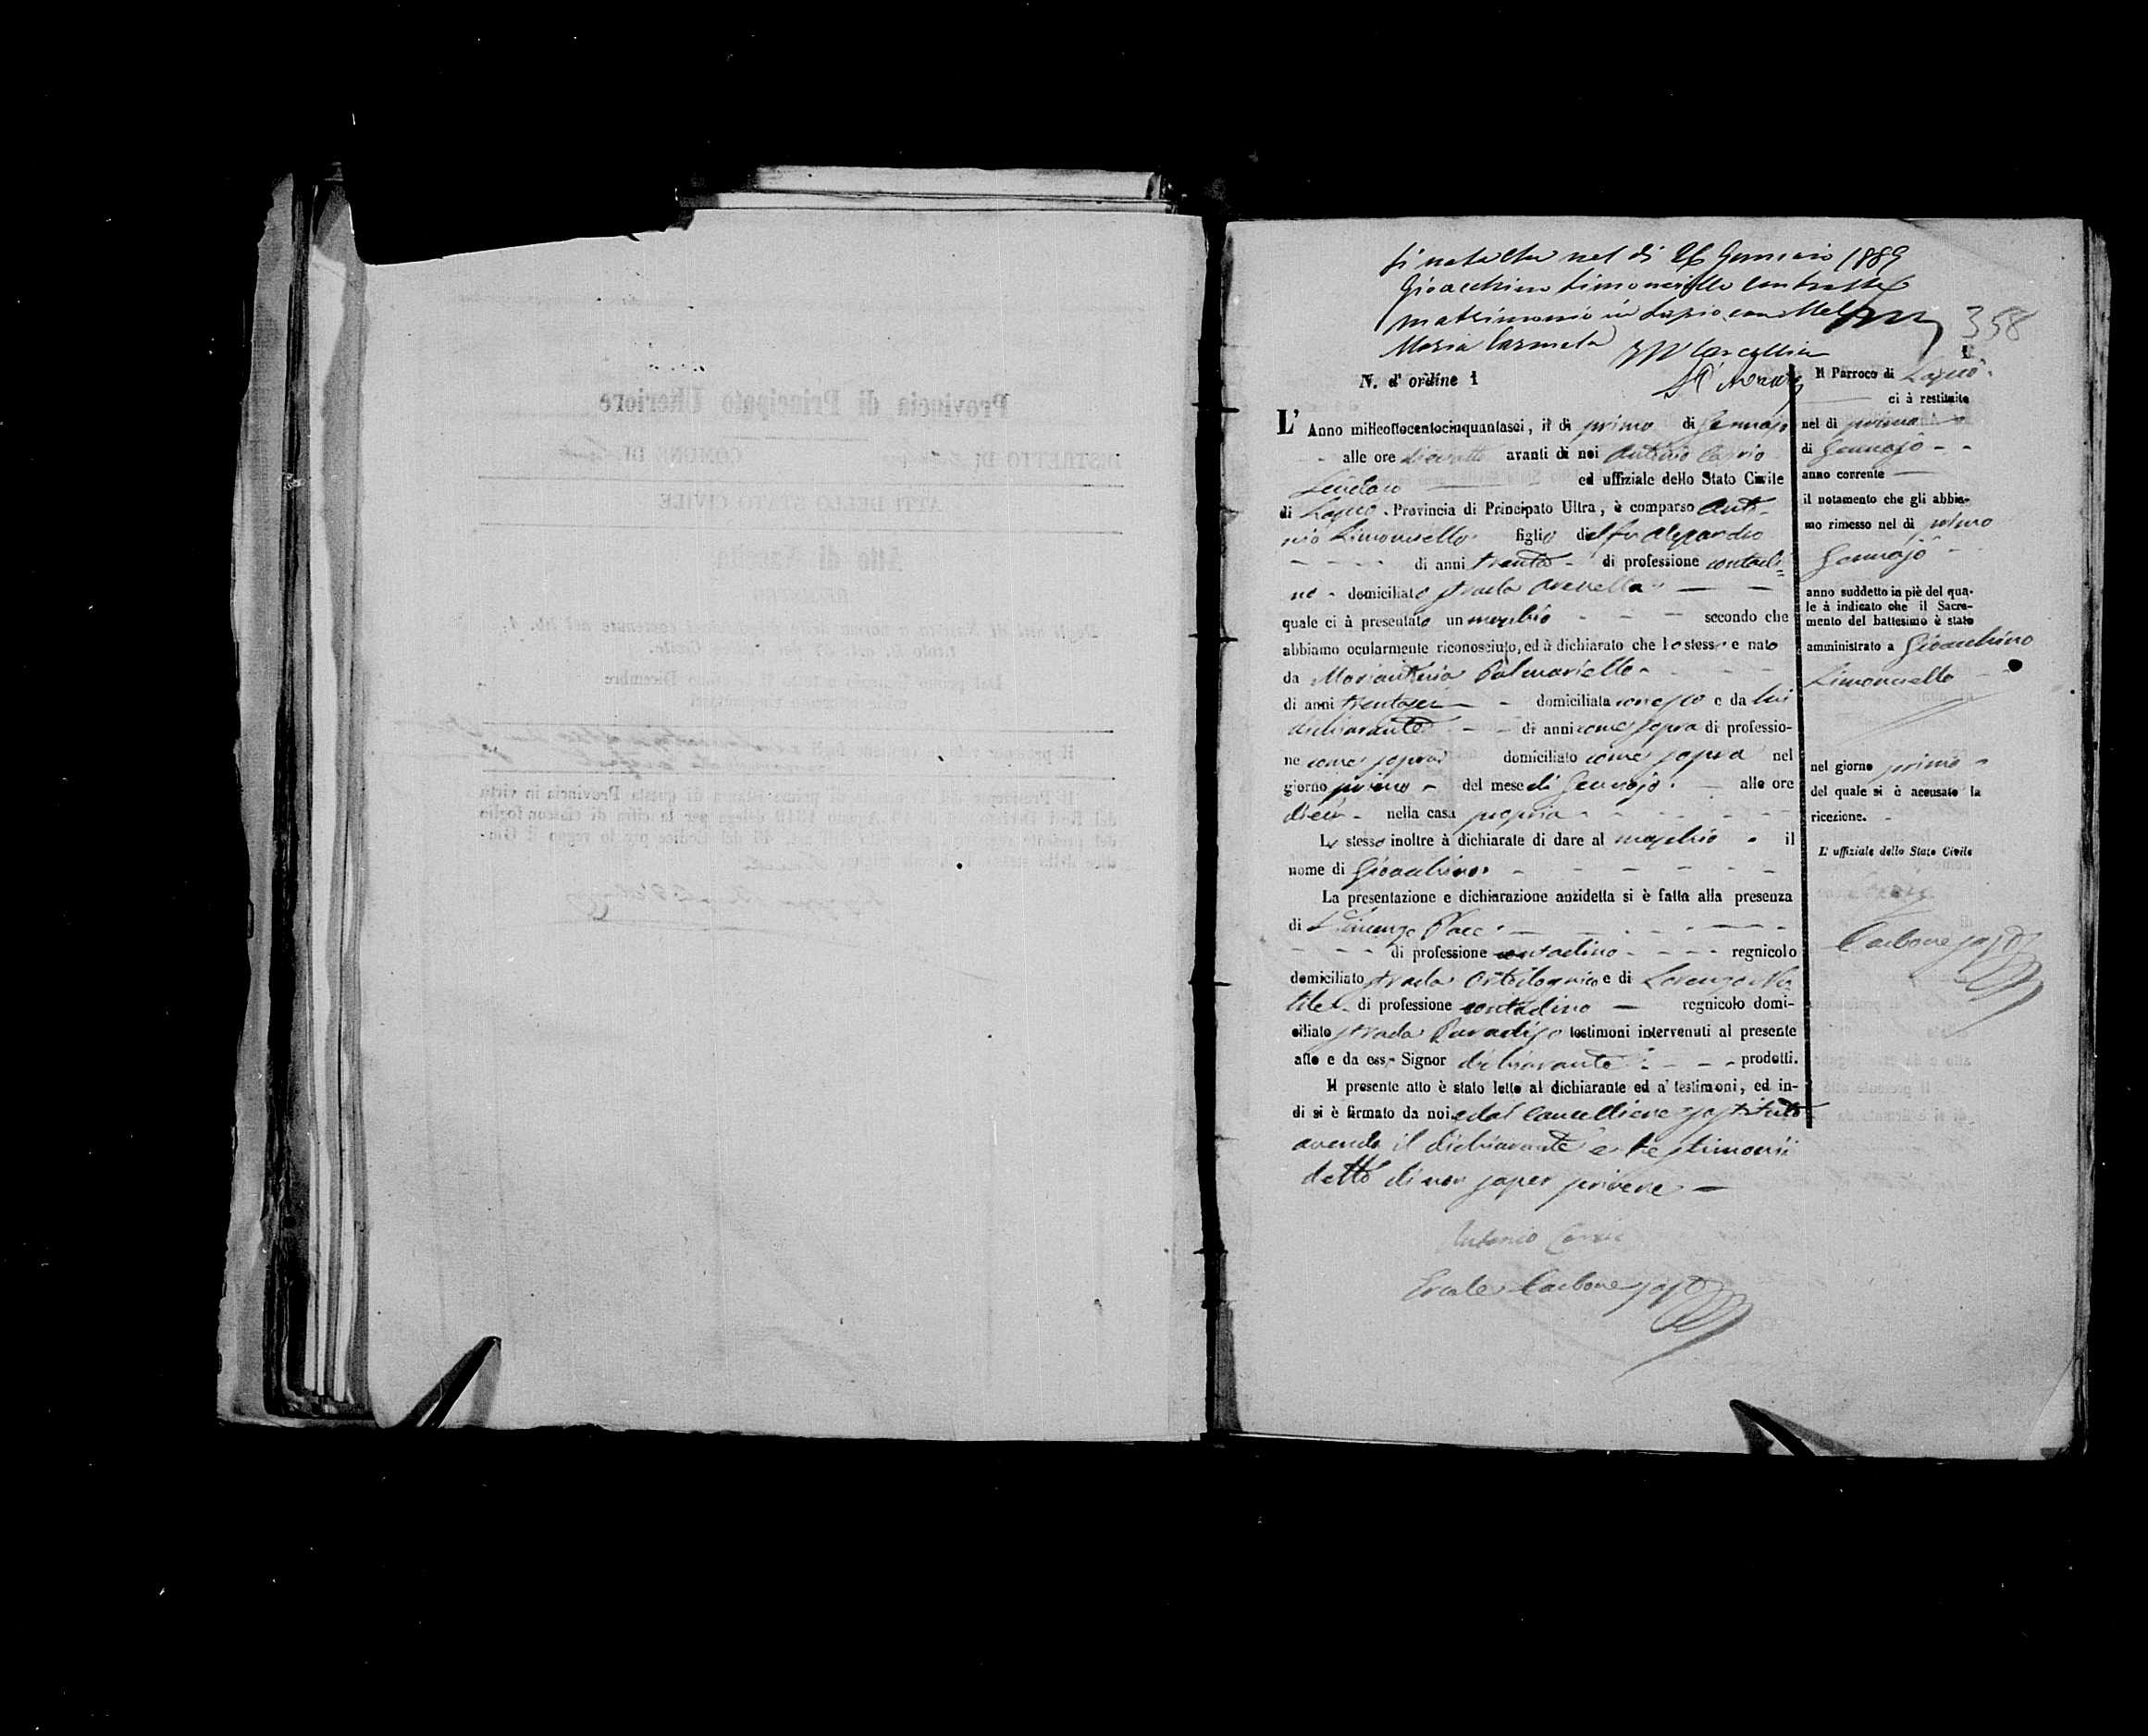 Si nota che nel dì 26 Gennaio 1889
Gioacchino Limonciello contrasse
matrimonio in Lapio con
Maria Carmela
358
1
N. d' ordine 1
L' Anno milleottocentocinquantasei, il dì primo di Gennajo
alle ore dieciotto avanti di noi Antonio Carrio
Sindaco ed uffiziale dello Stato Civile
di Lapio. Provincia di Principato Ultra, è comparso Anto-
nio Limonciello figlio del fu Alesandro
di anni trenta di professione contadi-
no domiciliato strada
quale ci à presentato un maschio secondo che
abbiamo ocularmente riconosciuto, ed à dichiarato che lo stesso e nato
da Mariantonia Palmariello
di anni trentasei domiciliata con esso e da lui
dichiarante di anni come sopra di professio-
ne come sopra domiciliato come sopra nel
giorno primo del mese di Gennajo alle ore
dieci nella casa propria
Lo stesso inoltre à dichiarato di dare al maschio il
nome di Gioacchino
La presentazione e dichiarazione anzidetta si è fatta alla presenza
di Vincenzo
di professione contadino regnicolo
domiciliato strada e di Lorenzo
di professione contadino regnicolo domi-
ciliato strada Paradiso testimoni intervenuti al presente
atto e da esso Signor dichiarante prodotti.
Il presente atto è stato letto al dichiarante ed a' testimoni, ed in-
di si è firmato da noi e dal Cancelliere sostituto
avendo il dichiarante e testimonii
detto di non saper scrivere
Antonio Carrio
Ercole Carbone sost
Il Parroco di Lapio
ci à restituito
nel dì primo
di Gennajo
anno corrente
il notamento che gli abbia-
mo rimesso nel dì primo
Gennajo
anno suddetto in piè del qua-
le à indicato che il Sacra-
mento del battesimo è stato
amministrato a Gioacchino
Limonciello
nel giorno primo
del quale si è accusato la
ricezione.
L' uffiziale dello Stato Civile
Carbone sost